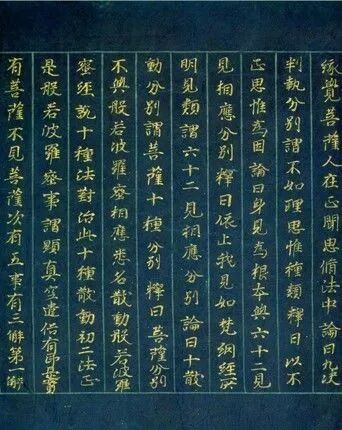 緣覺菩薩人在正聞思脩法中論曰九決
判執分別謂不如理思惟種類釋曰以不
正思惟為因論曰身見為根本與六十二見
見相應分別釋曰依止我見如梵網經所
明見類謂六十二見相應分別論曰十散
動分別謂菩薩十種分別釋曰菩薩分別
不與般若波羅蜜相應悉名散動般若波羅
蜜經說十種法對治此十種散動初二法正
是般若波羅蜜事謂顯真空遣俗有即是實
有菩薩不見菩薩次有五事有三解第一解